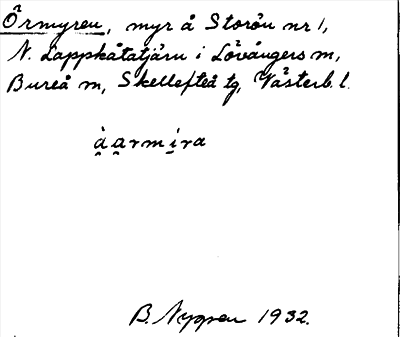 Örmyren, myr å Storön nr 1,
N. Lappkåtatjärn i Lövångers sn,
Bureå sn, Skellefteå tg, Västerb. l.
à̯a̯rmi̯ra
B. Nygren 1932.